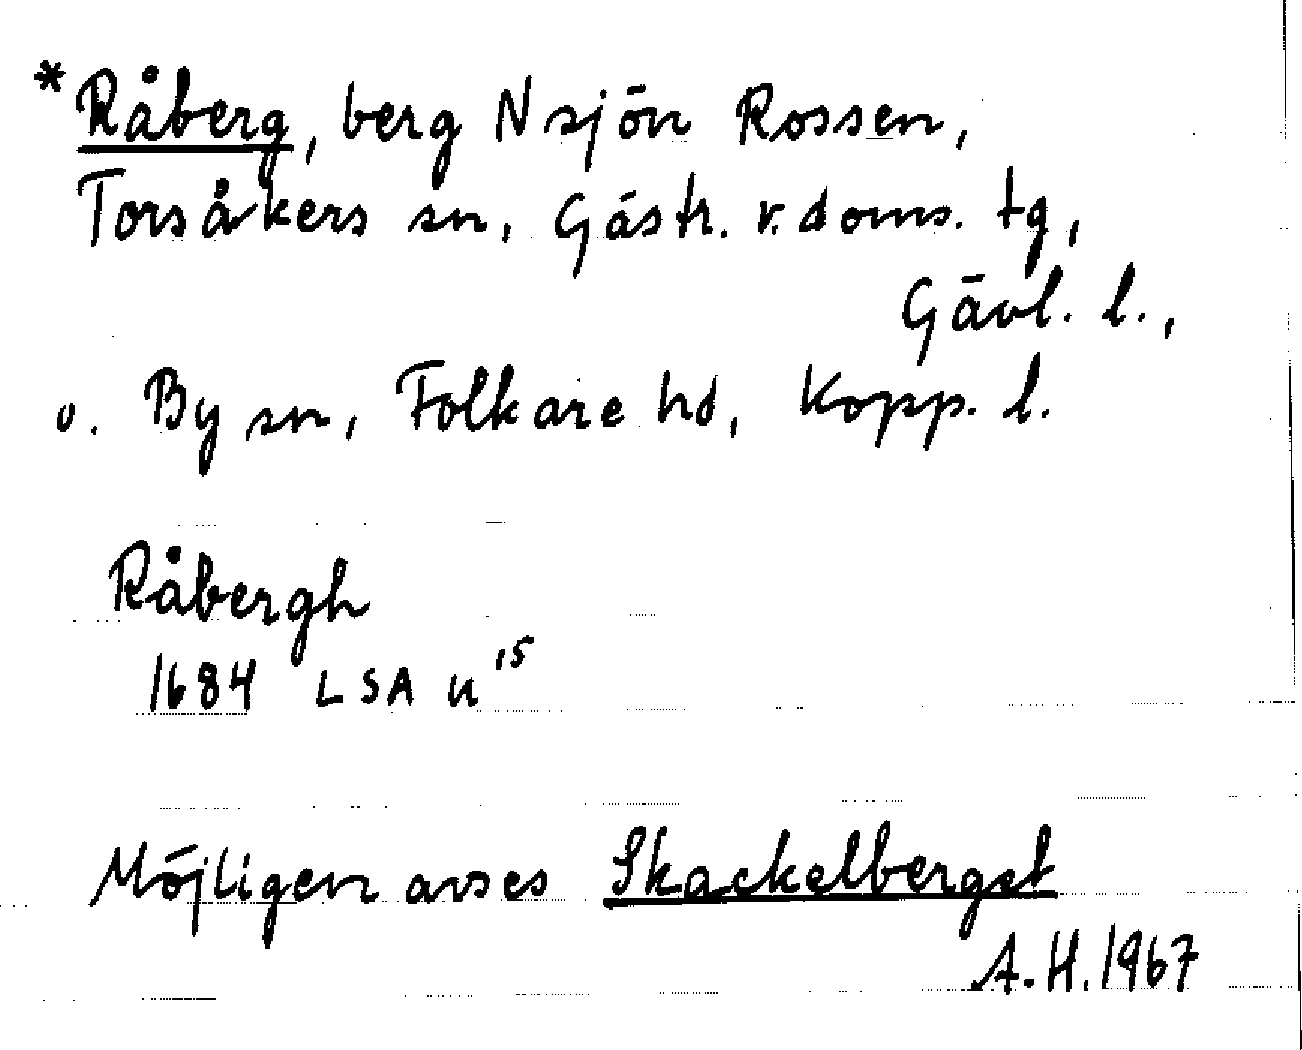 *Råberg, berg N sjön Rossen,
Torsåkers sn, Gästr. v. doms. tg,
Gävl. l.,
o. By sn, Folkare hd, Kopp. l.
Råbergh
1684 LSA U 15
Möjligen avses Skackelberget
A.H. 1967